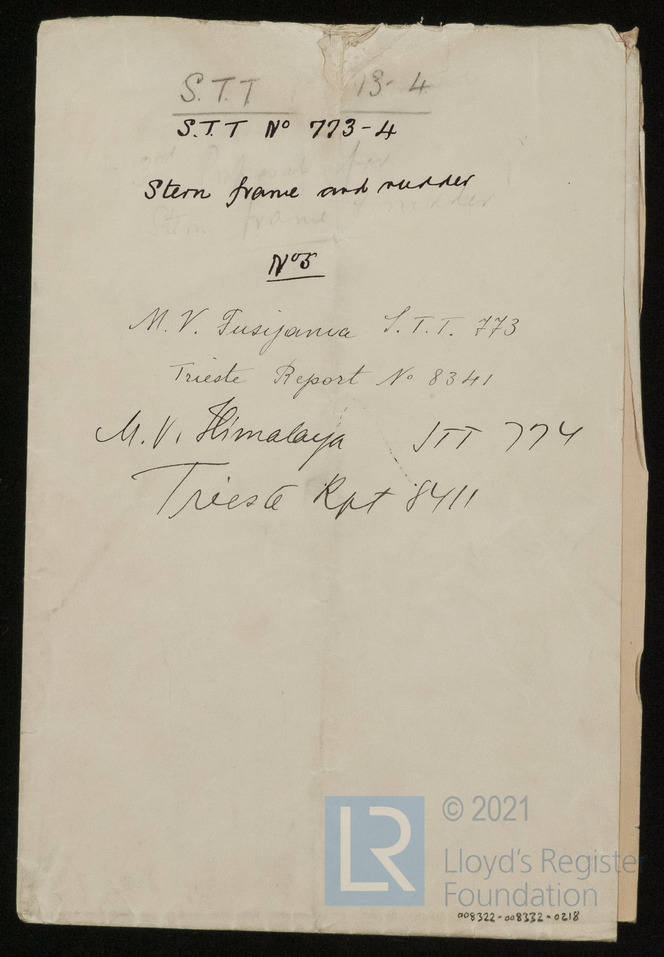 S.T.T 13-4
S.T.T No 773-4
Stern frame and rudder
Stern frame & rudder
No 5
M.V. Fusijama S.T.T. 773
Trieste Report No 8341
M.V. Himalaya STT 774
Trieste Rpt 8411
LR
© 2021
Lloyd's Register
Foundation
008322-008332-0218